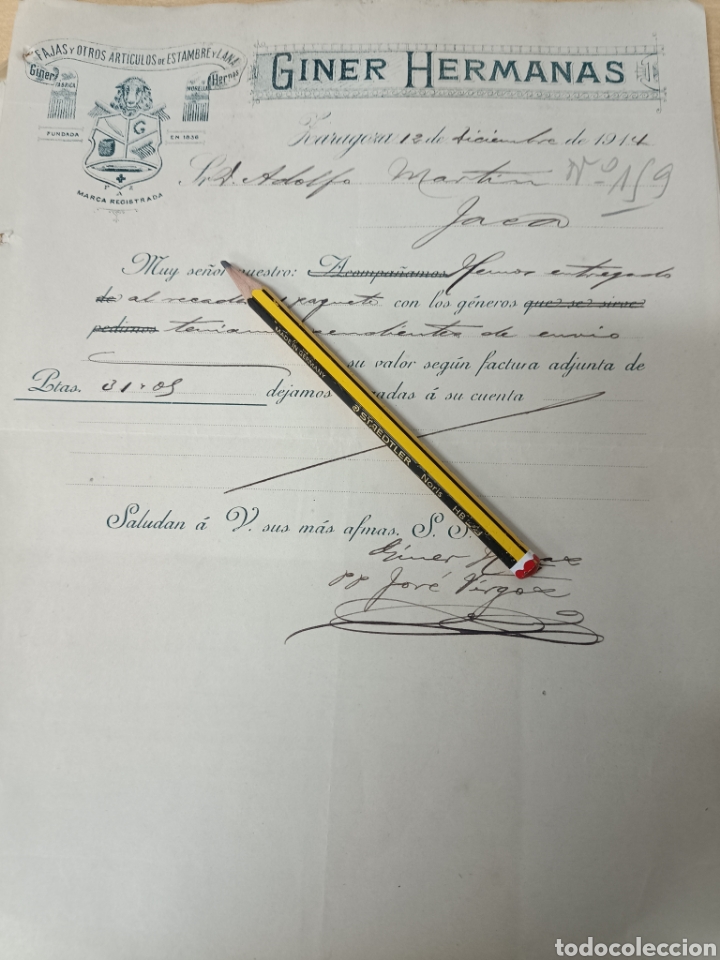 FAJAS Y OTROS ARTICULOS DE ESTAMBRE Y LANA
Giner Hermas
FABRICA MORELLA
GINER HERMANAS
FUNDADA EN 1836
G
MARCA REGISTRADA
Zaragoza 12 de diciembre de 1914
Sr. D. Adolfo Martin Nº 159
Jaca
Muy señor nuestro: Acompañamos Hemos entregado
de al recadero paquete con los géneros que se sirve
pedirnos tenian pendientes de envio
su valor según factura adjunta de
Ptas. 31'05 dejamos á su cuenta
Saludan á V. sus más afmas. S. S.
Giner
pp José
MADE IN GERMANY
STAEDTLER Noris HB
todocoleccion